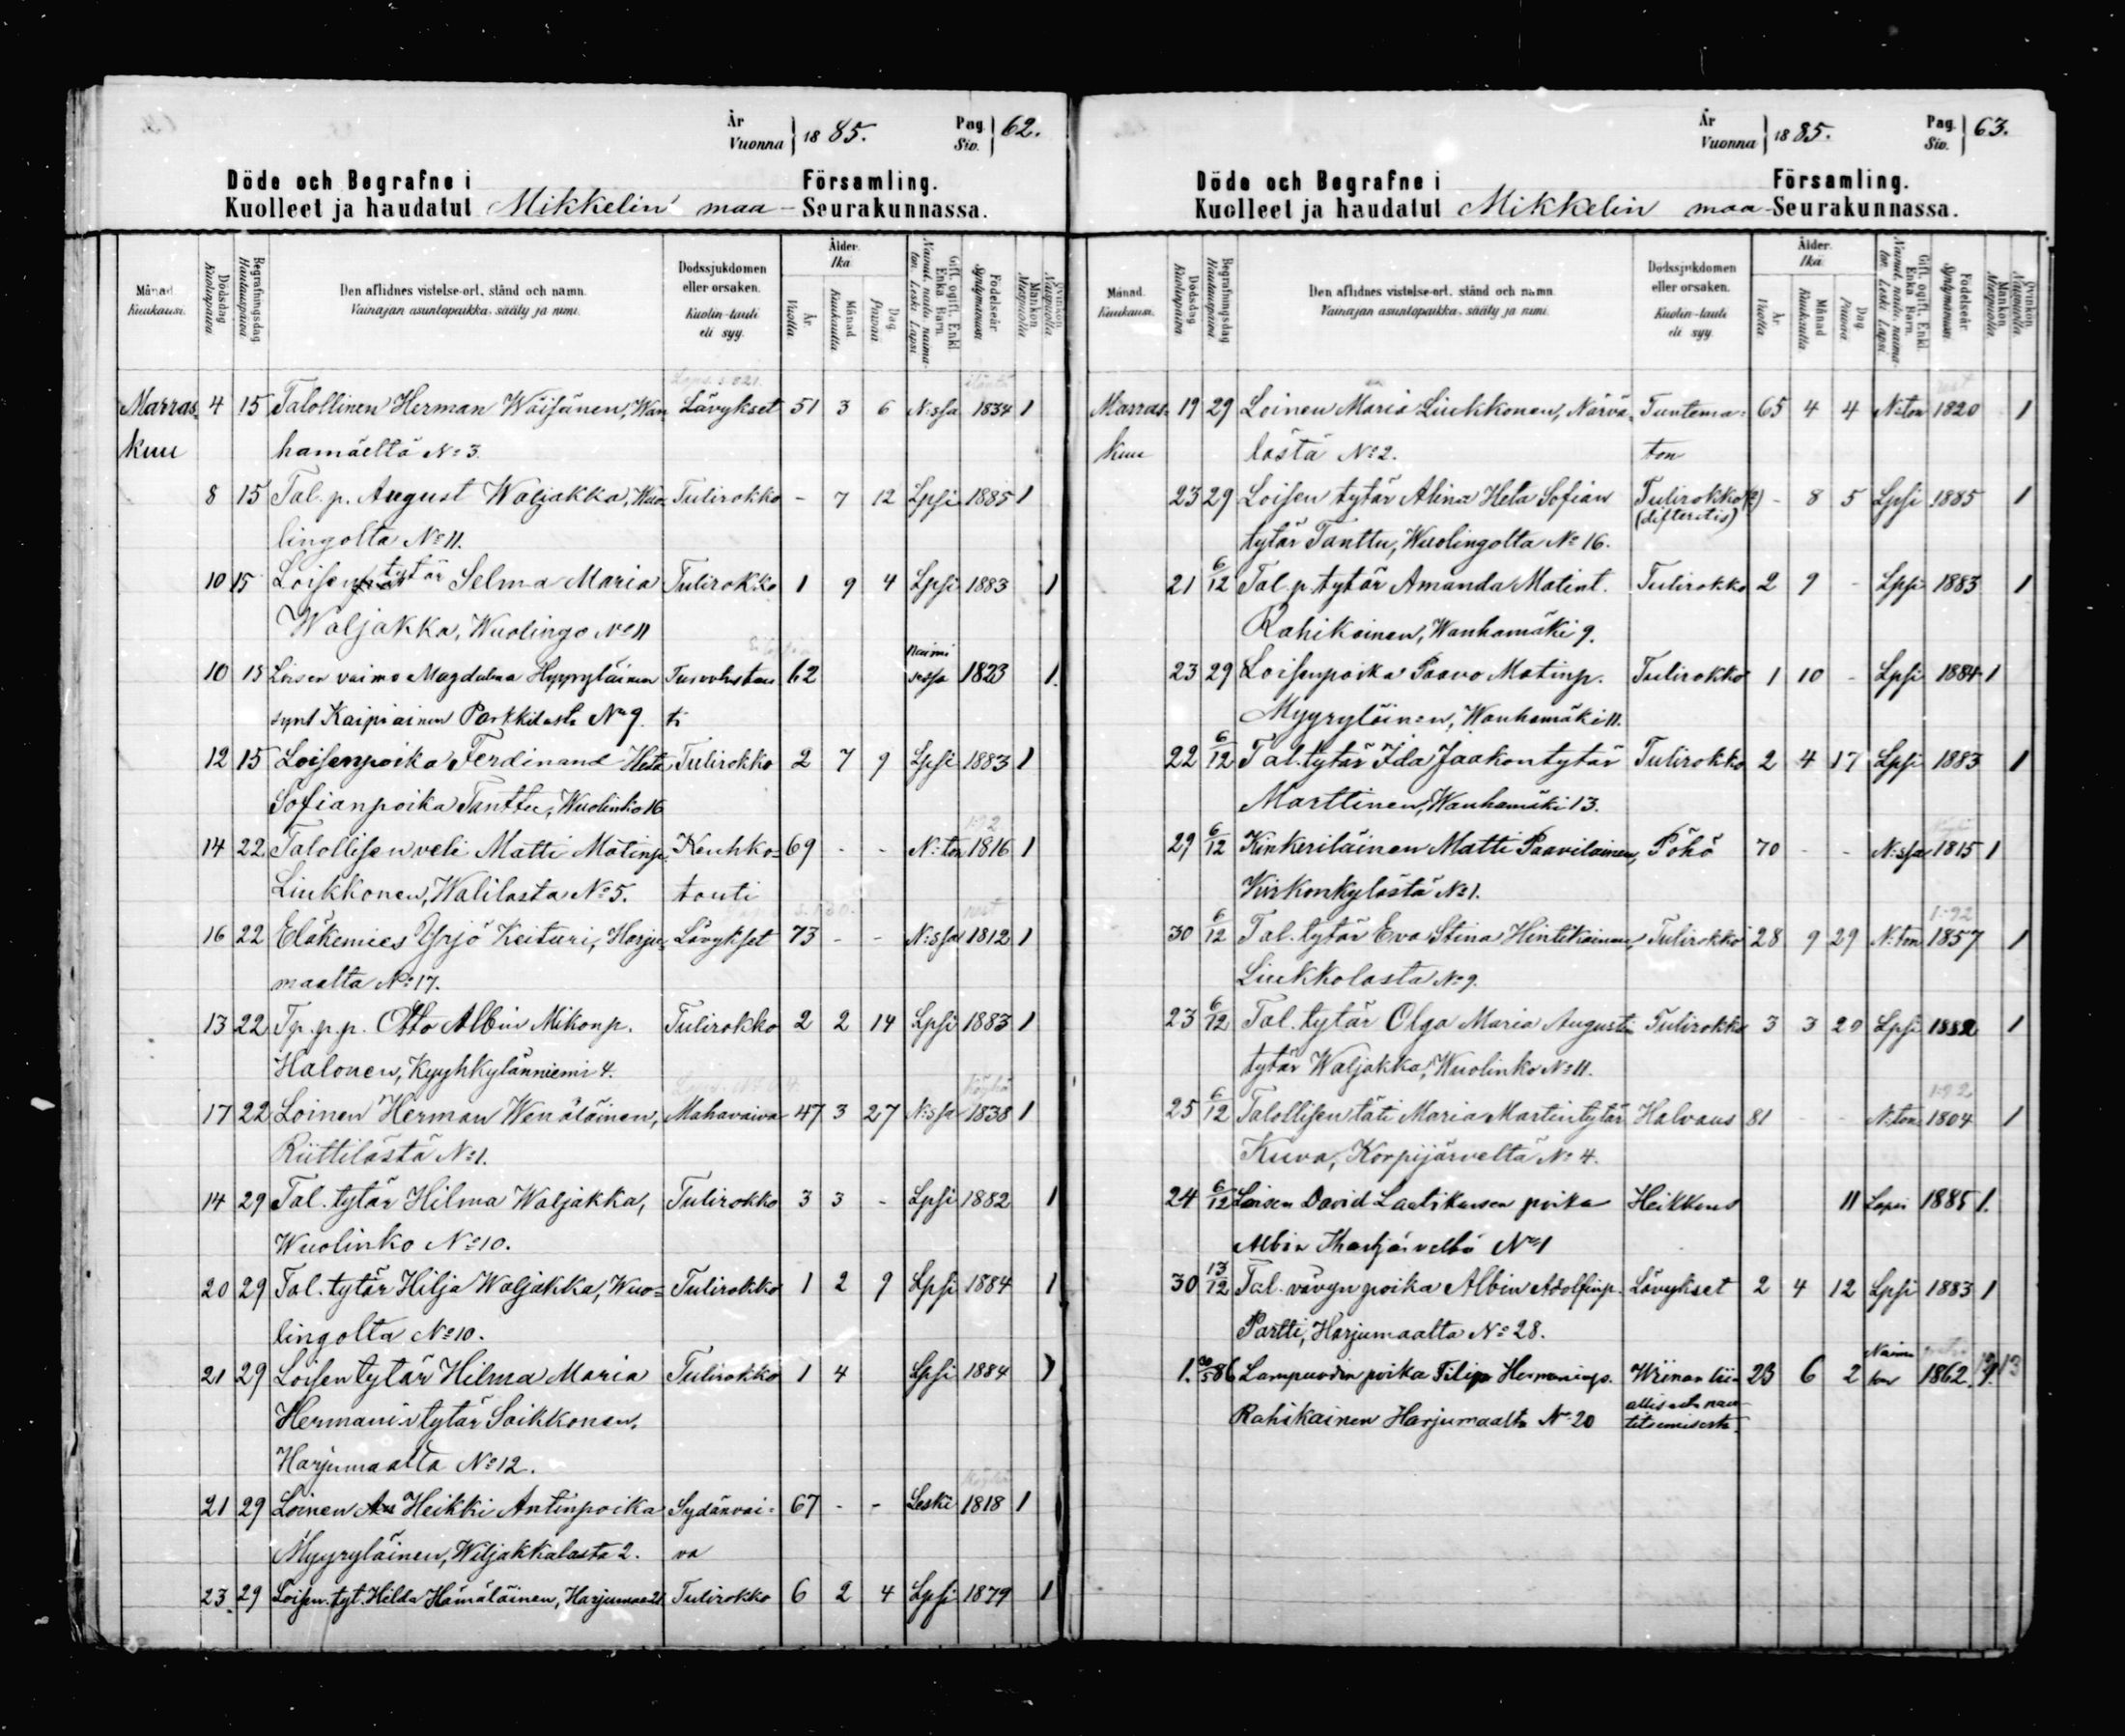 År Vuonna 1885. Pag. Siv. 62.
Döde och Begrafne i Församling.
Kuolleet ja haudatut Mikkelin maa- Seurakunnassa.
Månad. Kuukausi. Dödsdag Kuolinpäivä Begrafningsdag Hautauspäivä Den aflidnes vistelse-ort, stånd och namn. Vainajan asuntopaikka, sääty ja nimi. Dödssjukdomen eller orsaken. Kuolin-tauti eli syy. Ålder. Ikä År. Vuotta Månad Kuukautta Dag. Päivää Gift, ogift, Enkl. Enka Barn. Nainut, naim. naima-ton. Leski Lapsi Födelseår Syntymävuosi Mankön. Miespuolia Qvinkön. Naispuolia
Marras- 4 15 Talollinen Herman Wäisänen, Wan- Lävykset 51 3 6 N:ssa 1834 1
kuu hamäeltä No 3.
8 15 Tal. p. August Waljakka, Wuo- Tulirokko - 7 12 Lpsi 1885 1
lingolta No 11.
10 15 Loisen tytär Selma Maria Tulirokko 1 9 4 Lpsi 1883 1
Waljakka, Wuolingo No 11
10 15 Loisen vaimo Magdalena Hyyryläinen 62 Naimisessa 1823 1.
synt Kaipiainen Parkkilasta No 9. ti
12 15 Loisenpoika Ferdinand Heta Tulirokko 2 7 9 Lpsi 1883 1
Sofianpoika Tanttu, Wuolinko 16
14 22 Talollisen veli Matti Matinp. Keuhko- 69 - - N:ton 1816 1
Liukkonen, Walilasta No 5. tauti
16 22 Eläkemies Yrjö Keituri, Harju- Lävykset 73 - - N:ssa 1812 1
maalta No 17.
13 22 Tp. p. p. Otto Albin Mikonp. Tulirokko 2 2 14 Lpsi 1883 1
Halonen, Kyyhkylänniemi 4.
17 22 Loinen Herman Wenäläinen, Mahavaiva 47 3 27 N:ssa 1838 1
Riittilästä No 1.
14 29 Tal. tytär Hilma Waljakka, Tulirokko 3 3 - Lpsi 1882 1
Wuolinko No 10.
20 29 Tal. tytär Hilja Waljakka, Wuo= Tulirokko 1 2 9 Lpsi 1884 1
lingolta No 10.
21 29 Loisen tytär Hilma Maria Tulirokko 1 4 Lpsi 1884 1
Hermanin tytär Saikkonen,
Harjumaalta No 12.
21 29 Loinen Heikki Antinpoika Sydänvai= 67 - - Leski 1818 1
Myyryläinen, Wiljakkalasta 2. va
23 29 Loisen. tyt. Hilda Hämäläinen, Harjumaa 21 Tulirokko 6 2 4 Lpsi 1879 1
År Vuonna 1885. Pag. Siv. 63.
Döde och Begrafne i Församling.
Kuolleet ja haudatut Mikkelin maa- Seurakunnassa.
Månad. Kuukausi. Dödsdag Kuolinpäivä Begrafningsdag Hautauspäivä Den aflidnes vistelse-ort, stånd och namn. Vainajan asuntopaikka, sääty ja nimi. Dödssjukdomen eller orsaken. Kuolin-tauti eli syy. Ålder. Ikä. År. Vuotta Månad Kuukautta Dag. Päivää Gift, ogift, Enkl. Enka Barn. Nainut, naim. naima-ton. Leski Lapsi Födelseår Syntymävuosi Mankön. Miespuolia Qvinkön. Naispuolia
Marras- 19 29 Loinen Maria Liukkonen, Närvä- Tuntema- 65 4 4 N:ton 1820 1
kuu lästä No 2. ton
23 29 Loisen tytär Alina Heta Sofian Tulirokko (?) - 8 5 Lpsi 1885 1
tytär Tanttu, Wuolingolta No 16. (difteritis)
21 6/12 Tal. p. tytär Amanda Matint. Tulirokko 2 9 - Lpsi 1883 1
Rahikainen, Wanhamäki 9.
23 29 Loisenpoika Paavo Matinp. Tulirokko 1 10 - Lpsi 1884 1
Myyryläinen, Wanhamäki 11.
22 6/12 Tal. tytär Ida Jaakontytär Tulirokko 2 4 17 Lpsi 1883 1
Marttinen, Wanhamäki 13.
29 6/12 Kinkeriläinen Matti Paavilainen, Pöhö 70 - - N:ssa 1815 1
Kirkonkylästä No 1.
30 6/12 Tal. tytär Eva Stina Hintikainen, Tulirokko 28 9 29 N:ton 1857 1
Liukkolasta No 9.
23 6/12 Tal. tytär Olga Maria Augusti- Tulirokko 3 3 20 Lpsi 1882 1
tytär Waljakka, Wuolinko No 11.
25 6/12 Talollisen täti Maria Martintytär Halvaus 81 - - N:ton 1804 1
Kuva, Korpijärveltä No 4.
24 6/12 Loisen David Laatikaisen poika Heikkous 11 Lapsi 1885 1.
Albin No 1
30 13/12 Tal. vävyn poika Albin Adolfinp. Lävykset 2 4 12 Lpsi 1883 1
Partti, Harjumaalta No 28.
1. Lampuodin poika Filip Hermaninp. Wiinan lii- 23 6 2 Naimaton 1862 1
Rahikainen Harjumaalta No 20 allisesta nau-
titsemisesta.